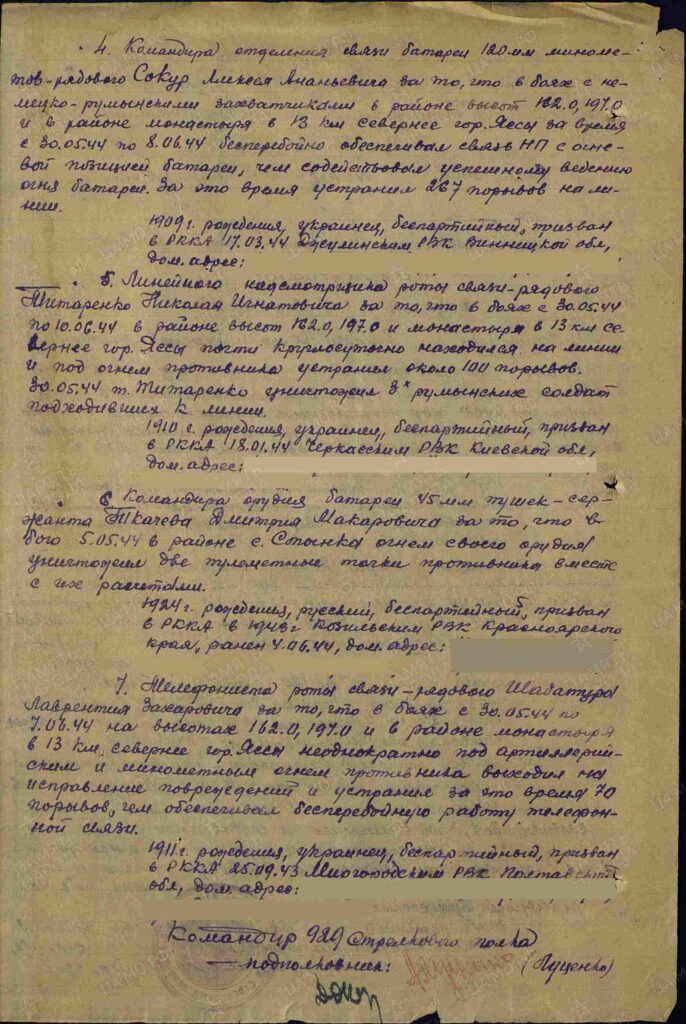 4. Командира отделения связи батареи 120 мм миноме-
тов-рядового Сокур Алексея Ананьевича за то, что в боях с не-
мецко-румынскими захватчиками в районе высот 162.0, 197.0
и в районе монастыря в 13 км севернее гор. Яссы за время
с 30.05.44 по 8.06.44 бесперебойно обеспечивал связь НП с огне-
вой позицией батареи, чем содействовал успешному ведению
огня батареи. За это время устранил 267 порывов на ли-
нии.
1909 г. рождения, украинец, беспартийный, призван
в РККА 17.03.44 Джулинским РВК Винницкой обл,
дом. адрес:
5. Линейного надсмотрщика роты связи-рядового
Титаренко Николая Игнатовича за то, что в боях с 30.05.44
по 10.06.44 в районе высот 162.0, 197.0 и монастыря в 13 км се-
вернее гор. Яссы почти круглосуточно находился на линии
и под огнем противника устранил около 100 порывов.
30.05.44 т. Титаренко уничтожил 3х румынских солдат
подходившие к линии.
1910 г. рождения, украинец, беспартийный, призван
в РККА 18.01.44 Черкасским РВК Киевской обл,
дом. адрес:
6 Командира орудия батареи 45 мм пушек-сер-
жанта Ткачева Дмитрия Макаровича за то, что в
бою 5.05.44 в районе с. Стынка огнем своего орудия
уничтожил две пулеметные точки противника вместе
с их расчетами.
1924 г. рождения, русский, беспартийный, призван
в РККА в 1943 г РВК Красноярского
края, ранен 4.06.44, дом. адрес:
7. Телефониста роты связи-рядового Шабатура
Лаврентия Захаровича за то, что в боях с 30.05.44 по
7.06.44 на высотах 162.0, 197.0 и в районе монастыря
в 13 км севернее гор. Яссы неоднократно под артиллерий-
ским и минометным огнем противника выходил на
исправление повреждений и устранил за это время 70
порывов, чем обеспечивал бесперебойную работу телефон-
ной связи.
1911 г. рождения, украинец, беспартийный, призван
в РККА 25.09.43 РВК Полтавской
обл, дом. адрес:
Командир 929 стрелкового полка
подполковник: (Луценко)